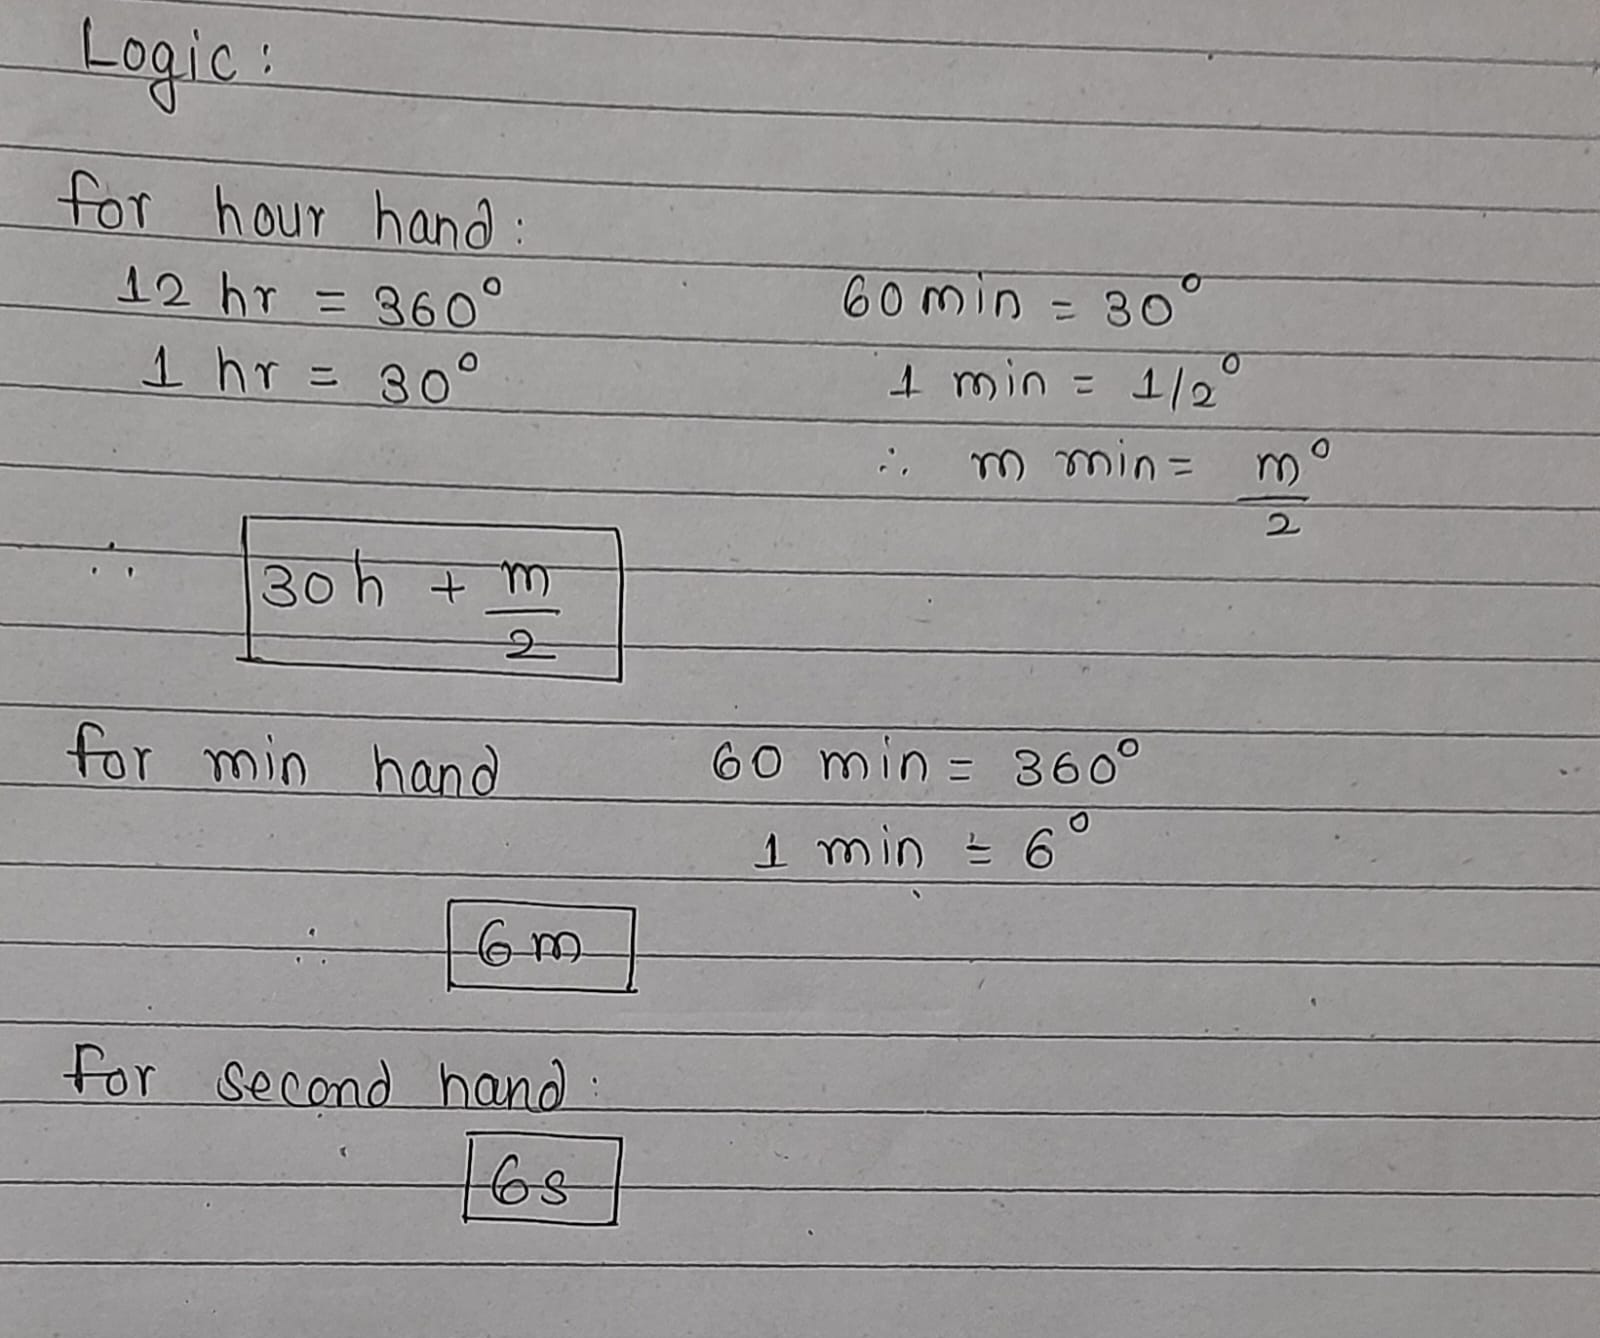 Logic:
for hour hand:
12 hr = 360°
60 min = 30°
1 hr = 30°
1 min = 1/2°
∴ m min = m°/2
∴ 30h + m/2
for min hand
60 min = 360°
1 min = 6°
∴ 6m
for second hand:
6s